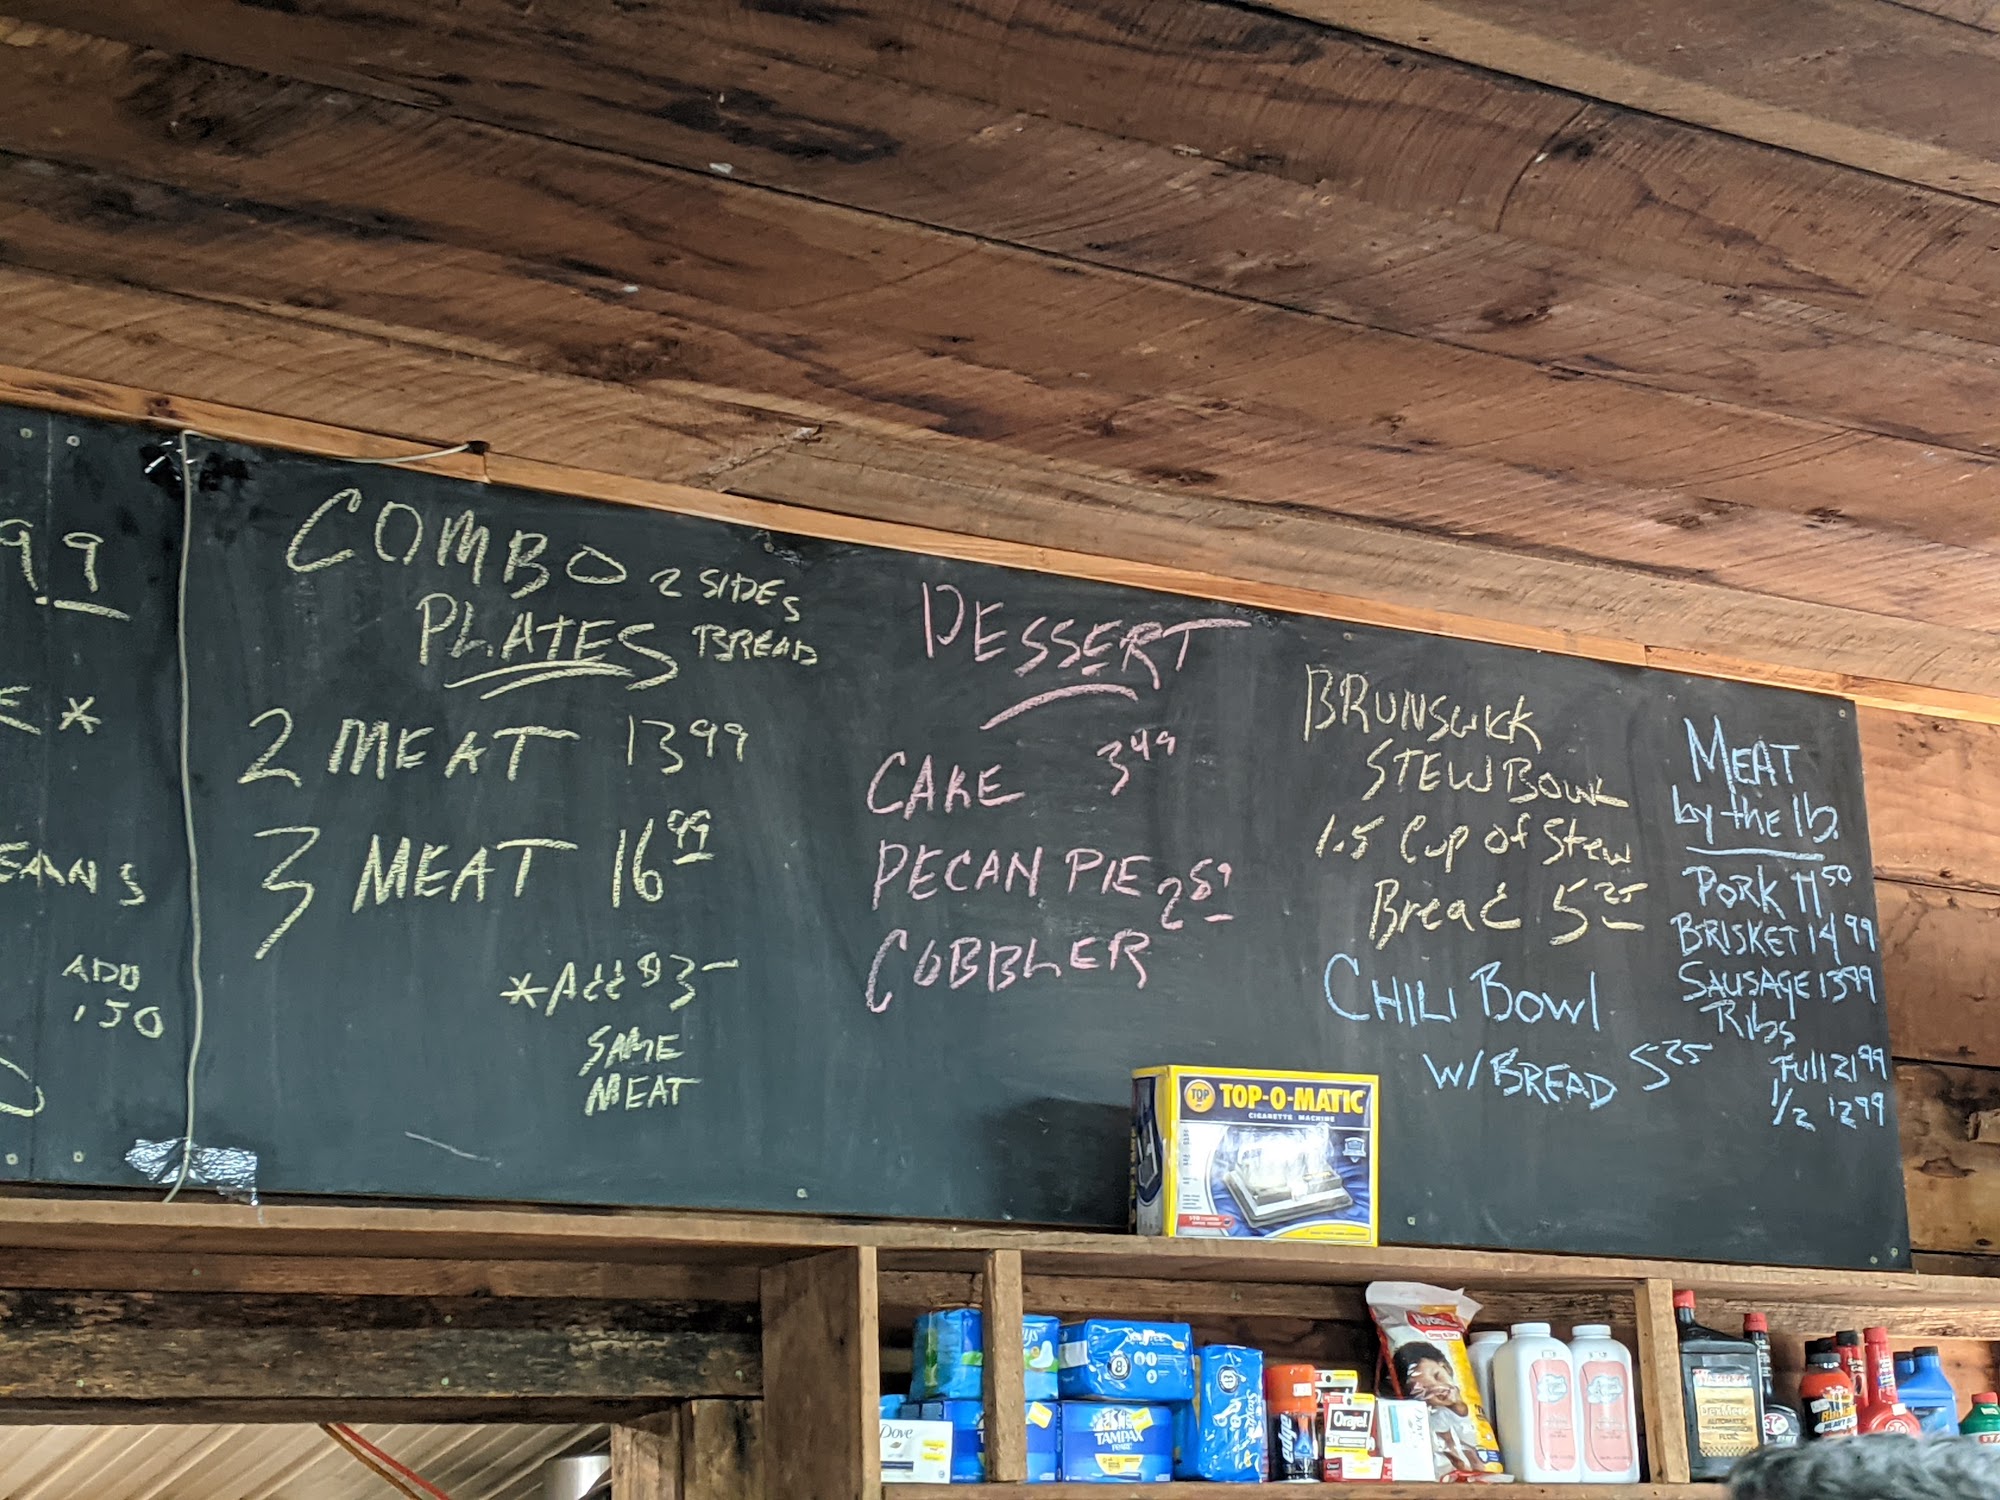 99
E *
EANS
ADD
.50
COMBO
PLATES
2 SIDES
BREAD
2 MEAT 13 99
3 MEAT 16 99
*Add $3-
SAME
MEAT
DESSERT
CAKE 3 49
PECAN PIE 2 59
COBBLER
BRUNSWICK
STEW BOWL
1.5 Cup of Stew
Bread 5 25
CHILI Bowl
W/ BREAD 5 25
MEAT
by the lb.
PORK 11 50
BRISKET 14 99
SAUSAGE 13 99
Ribs
Full 21 99
1/2 12 99
TOP
TOP-O-MATIC
CIGARETTE MACHINE
Dove
TAMPAX
PEARL
Orajel
HUGGIES
AUTOMATIC
FLUID